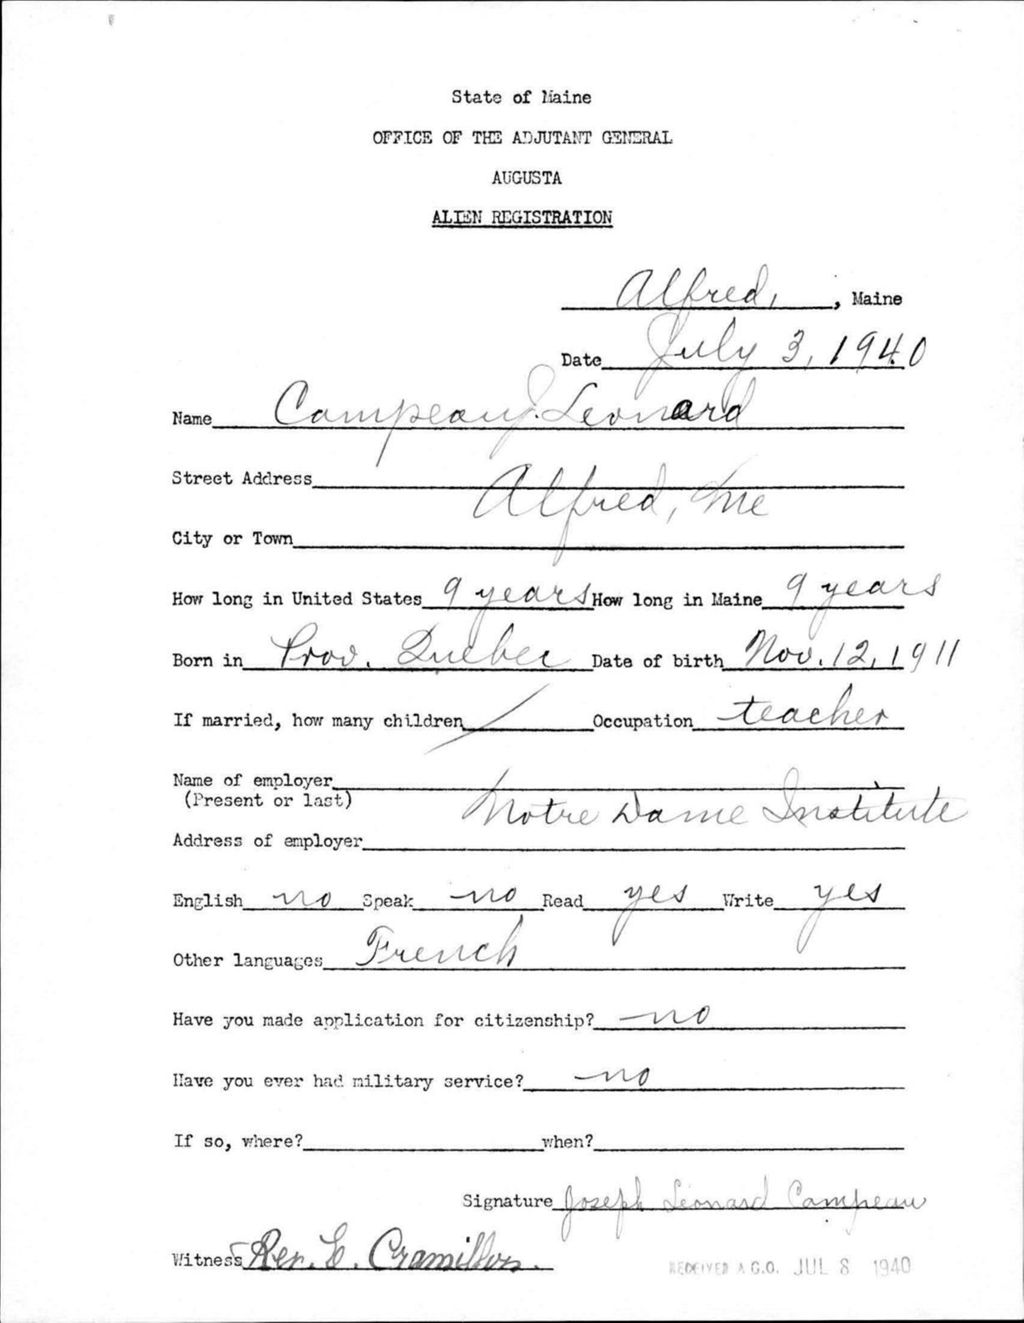 State of Maine
OFFICE OF THE ADJUTANT GENERAL
AUGUSTA
ALIEN REGISTRATION
Alfred, , Maine
Date July 3, 1940
Name Campeau, J. Leonard
Street Address
Alfred, Me
City or Town
How long in United States 9 years How long in Maine 9 years
Born in Prov. Quebec Date of birth Nov. 12, 1911
If married, how many children / Occupation teacher
Name of employer
(Present or last)
Notre Dame Institute
Address of employer
English no Speak no Read yes Write yes
Other languages French
Have you made application for citizenship? no
Have you ever had military service? no
If so, where? when?
Signature Joseph Leonard Campeau
Witness Rev. E.
RECEIVED A.G.O. JUL 8 1940